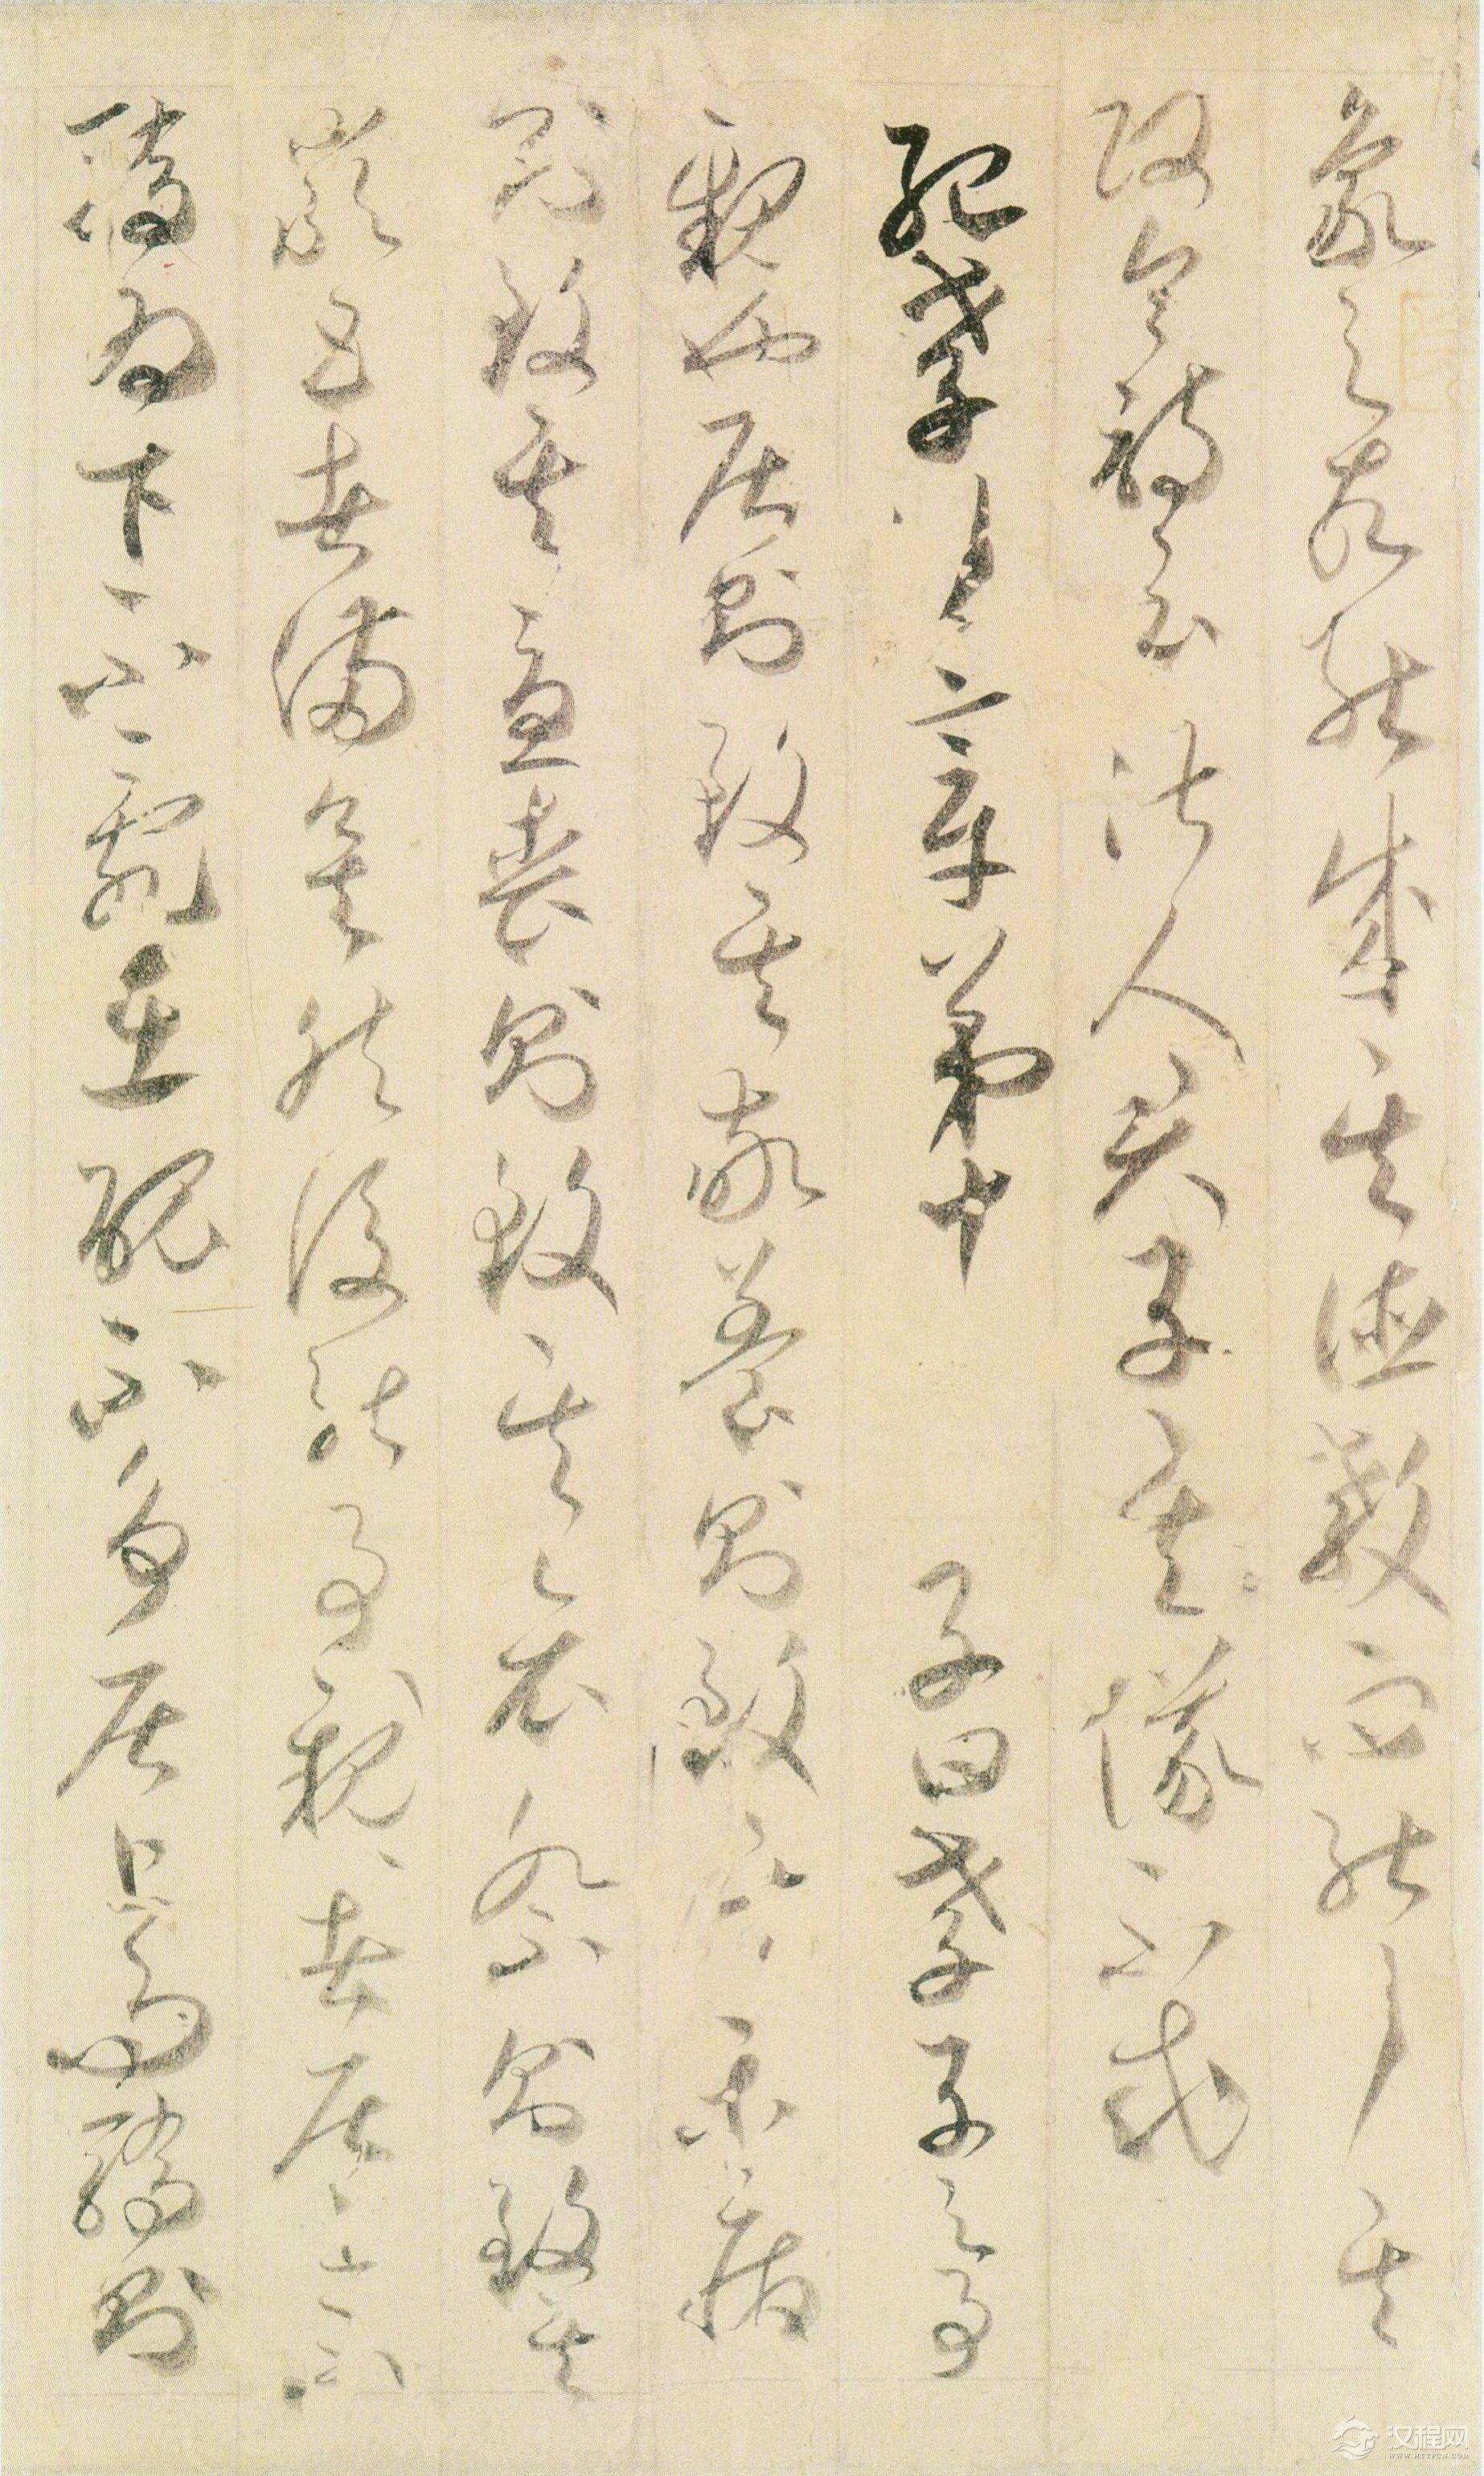 象之故能成其德教而能行其
政令詩云淑人君子其儀不忒
紀孝行章第十 子曰孝子之事
親也居則致其敬養則致其樂病
則致其憂喪則致其哀祭則致其
嚴五者備矣然後能事親者居上不
驕為下不亂在醜不爭居上而驕則
汉程网
WWW.HTTPCN.COM